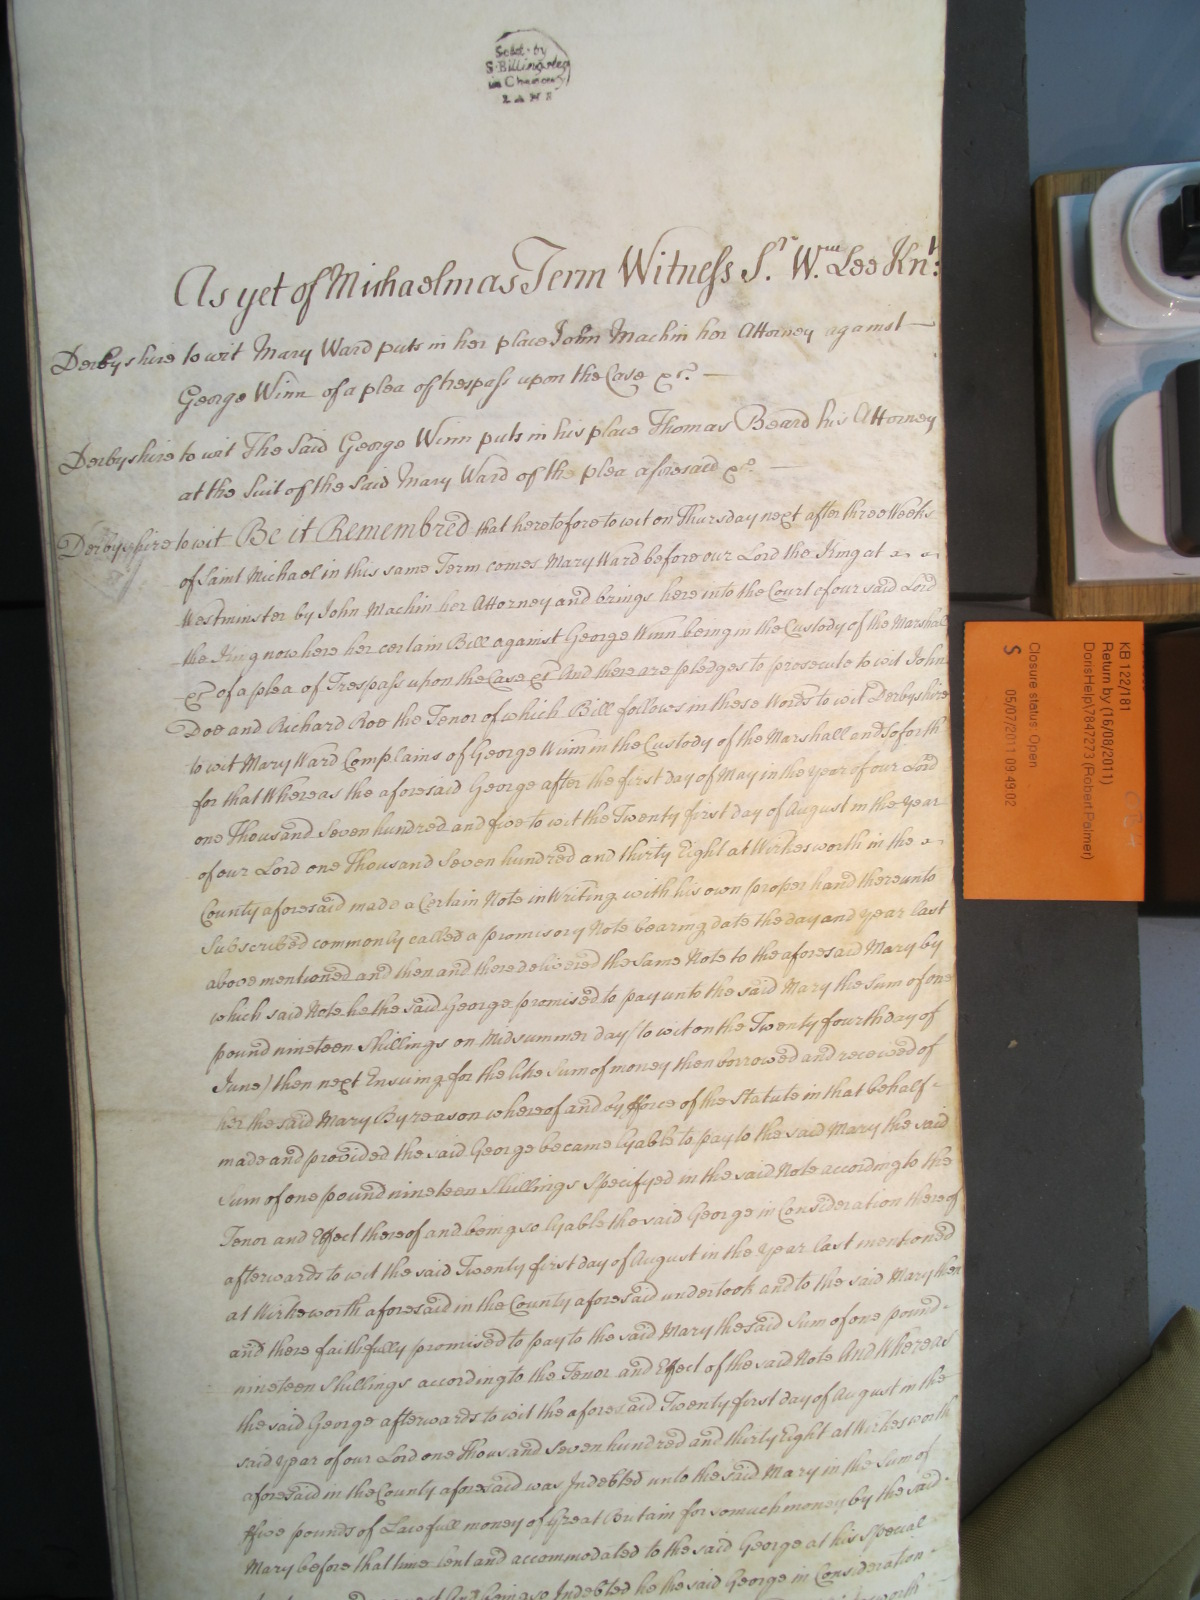 Sold by
S. Billingsley
in Chancery
Lane
As yet of Michaelmas Term Witness Sr. Wm. Lee Knt:
Derbyshire to wit Mary Ward puts in her place John Machin her Attorney against
George Winn of a plea of trespass upon the Case &c. —
Derbyshire to wit The said George Winn puts in his place Thomas Beard his Attorney
at the Suit of the said Mary Ward of the plea aforesaid &c. —
Derbyshire to wit Be it Remembred that heretofore to wit on Thursday next after three Weeks
of Saint Michael in this same Term comes Mary Ward before our Lord the King at
Westminster by John Machin her Attorney and brings here into the Court of our said Lord
the King now here her certain Bill against George Winn being in the Custody of the Marshal
&c of a plea of Trespass upon the Case &c And there are pledges to prosecute to wit John
Doe and Richard Roe the Tenor of which Bill follows in these Words to wit Derbyshire
to wit Mary Ward Complains of George Winn in the Custody of the Marshall and so forth
for that Whereas the aforesaid George after the first day of May in the year of our Lord
one Thousand Seven hundred and five to wit the Twenty first day of August in the Year
of our Lord one Thousand Seven hundred and thirty Eight at Wirkesworth in the
County aforesaid made a Certain Note in Writing with his own proper hand thereunto
Subscribed commonly called a promisory Note bearing date the day and year last
above mentioned and then and there delivered the same Note to the aforesaid Mary by
which said Note he the said George promised to pay unto the said Mary the Sum of one
pound nineteen Shillings on Midsummer day (to wit on the Twenty fourth day of
June) then next Ensuing for the like Sum of money then borrowed and received of
her the said Mary By reason whereof and by fforce of the Statute in that behalf
made and provided the said George became lyable to pay to the said Mary the said
Sum of one pound nineteen Shillings Specifyed in the said Note according to the
Tenor and Effect thereof and being so lyable the said George in Consideration thereof
afterwards to wit the said Twenty first day of August in the Year last mentioned
at Wirkesworth aforesaid in the County aforesaid undertook and to the said Mary then
and there faithfully promised to pay to the said Mary the said Sum of one pound
nineteen Shillings according to the Tenor and Effect of the said Note And Whereas
the said George afterwards to wit the aforesaid Twenty first day of August in the
said year of our Lord one Thousand Seven hundred and thirty Eight at Wirkesworth
aforesaid in the County aforesaid was Indebted unto the said Mary in the Sum of
ffive pounds of Lawfull money of Great Britain for so much money by the said
Mary before that time lent and accommodated to the said George at his Special
And being so Indebted he the said George in Consideration
KB 122/181
Return by (16/08/2011)
DorisHelp\7847273 (Robert Palmer)
Closure status: Open
S 05/07/2011 09:49:02